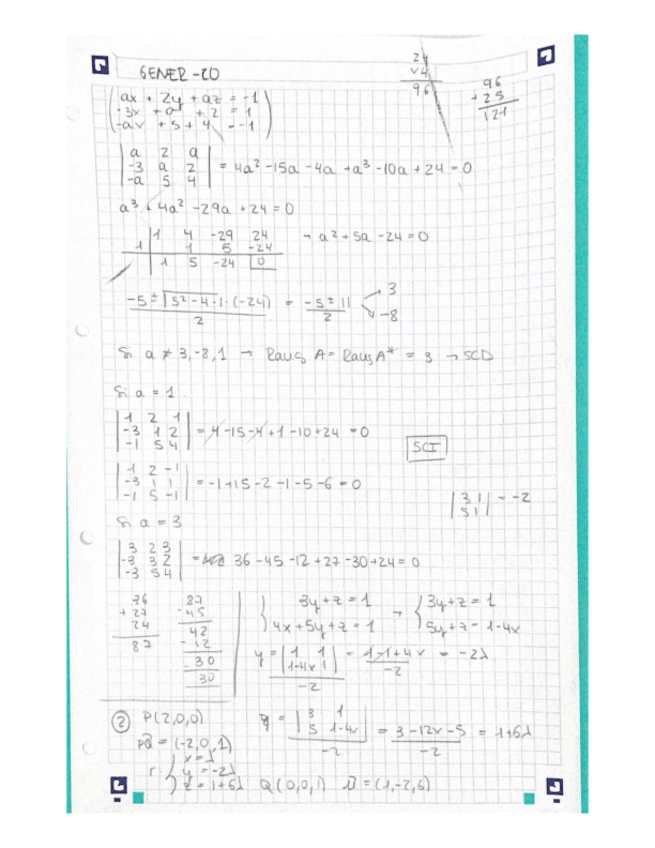 GENER-20
24
x4
96
96
+25
121
ax + 2y + az = -1
-3x + a + 2 = 1
-ax + 5 + 4 = -1
a 2 a
-3 a 2
-a 5 4
= 4a² -15a -4a +a³ -10a +24 = 0
a³ + 4a² -29a +24 = 0
1 4 -29 24
1 1 5 -24
1 5 -24 0
→ a² + 5a -24 = 0
-5 ± √5² -4·1·(-24) / 2 = -5 ± 11 / 2
3
-8
Si a ≠ 3, -8, 1 → Rang A = Rang A* = 3 → SCD
Si a = 1
1 2 1
-3 1 2
-1 5 4
= 4 -15 -4 +1 -10 +24 = 0
SCI
1 2 -1
-3 1 1
-1 5 -1
= -1 +15 -2 -1 -5 -6 = 0
3 1
5 1
= -2
Si a = 3
3 2 3
-3 3 2
-3 5 4
= 36 -45 -12 +27 -30 +24 = 0
36
+27
24
87
87
-45
42
-12
30
30
3y + z = 1
4x + 5y + z = 1
→
3y + z = 1
5y + z = 1-4x
y = |1 1 / 1-4x 1| / -2 = 1-1+4x / -2 = -2λ
② P(2,0,0)
z = |3 1 / 5 1-4x| / -2 = 3-12x-5 / -2 = 1+6λ
PQ = (-2,0,1)
r { x = λ
y = -2λ
z = 1+6λ Q(0,0,1) ū = (1,-2,6)